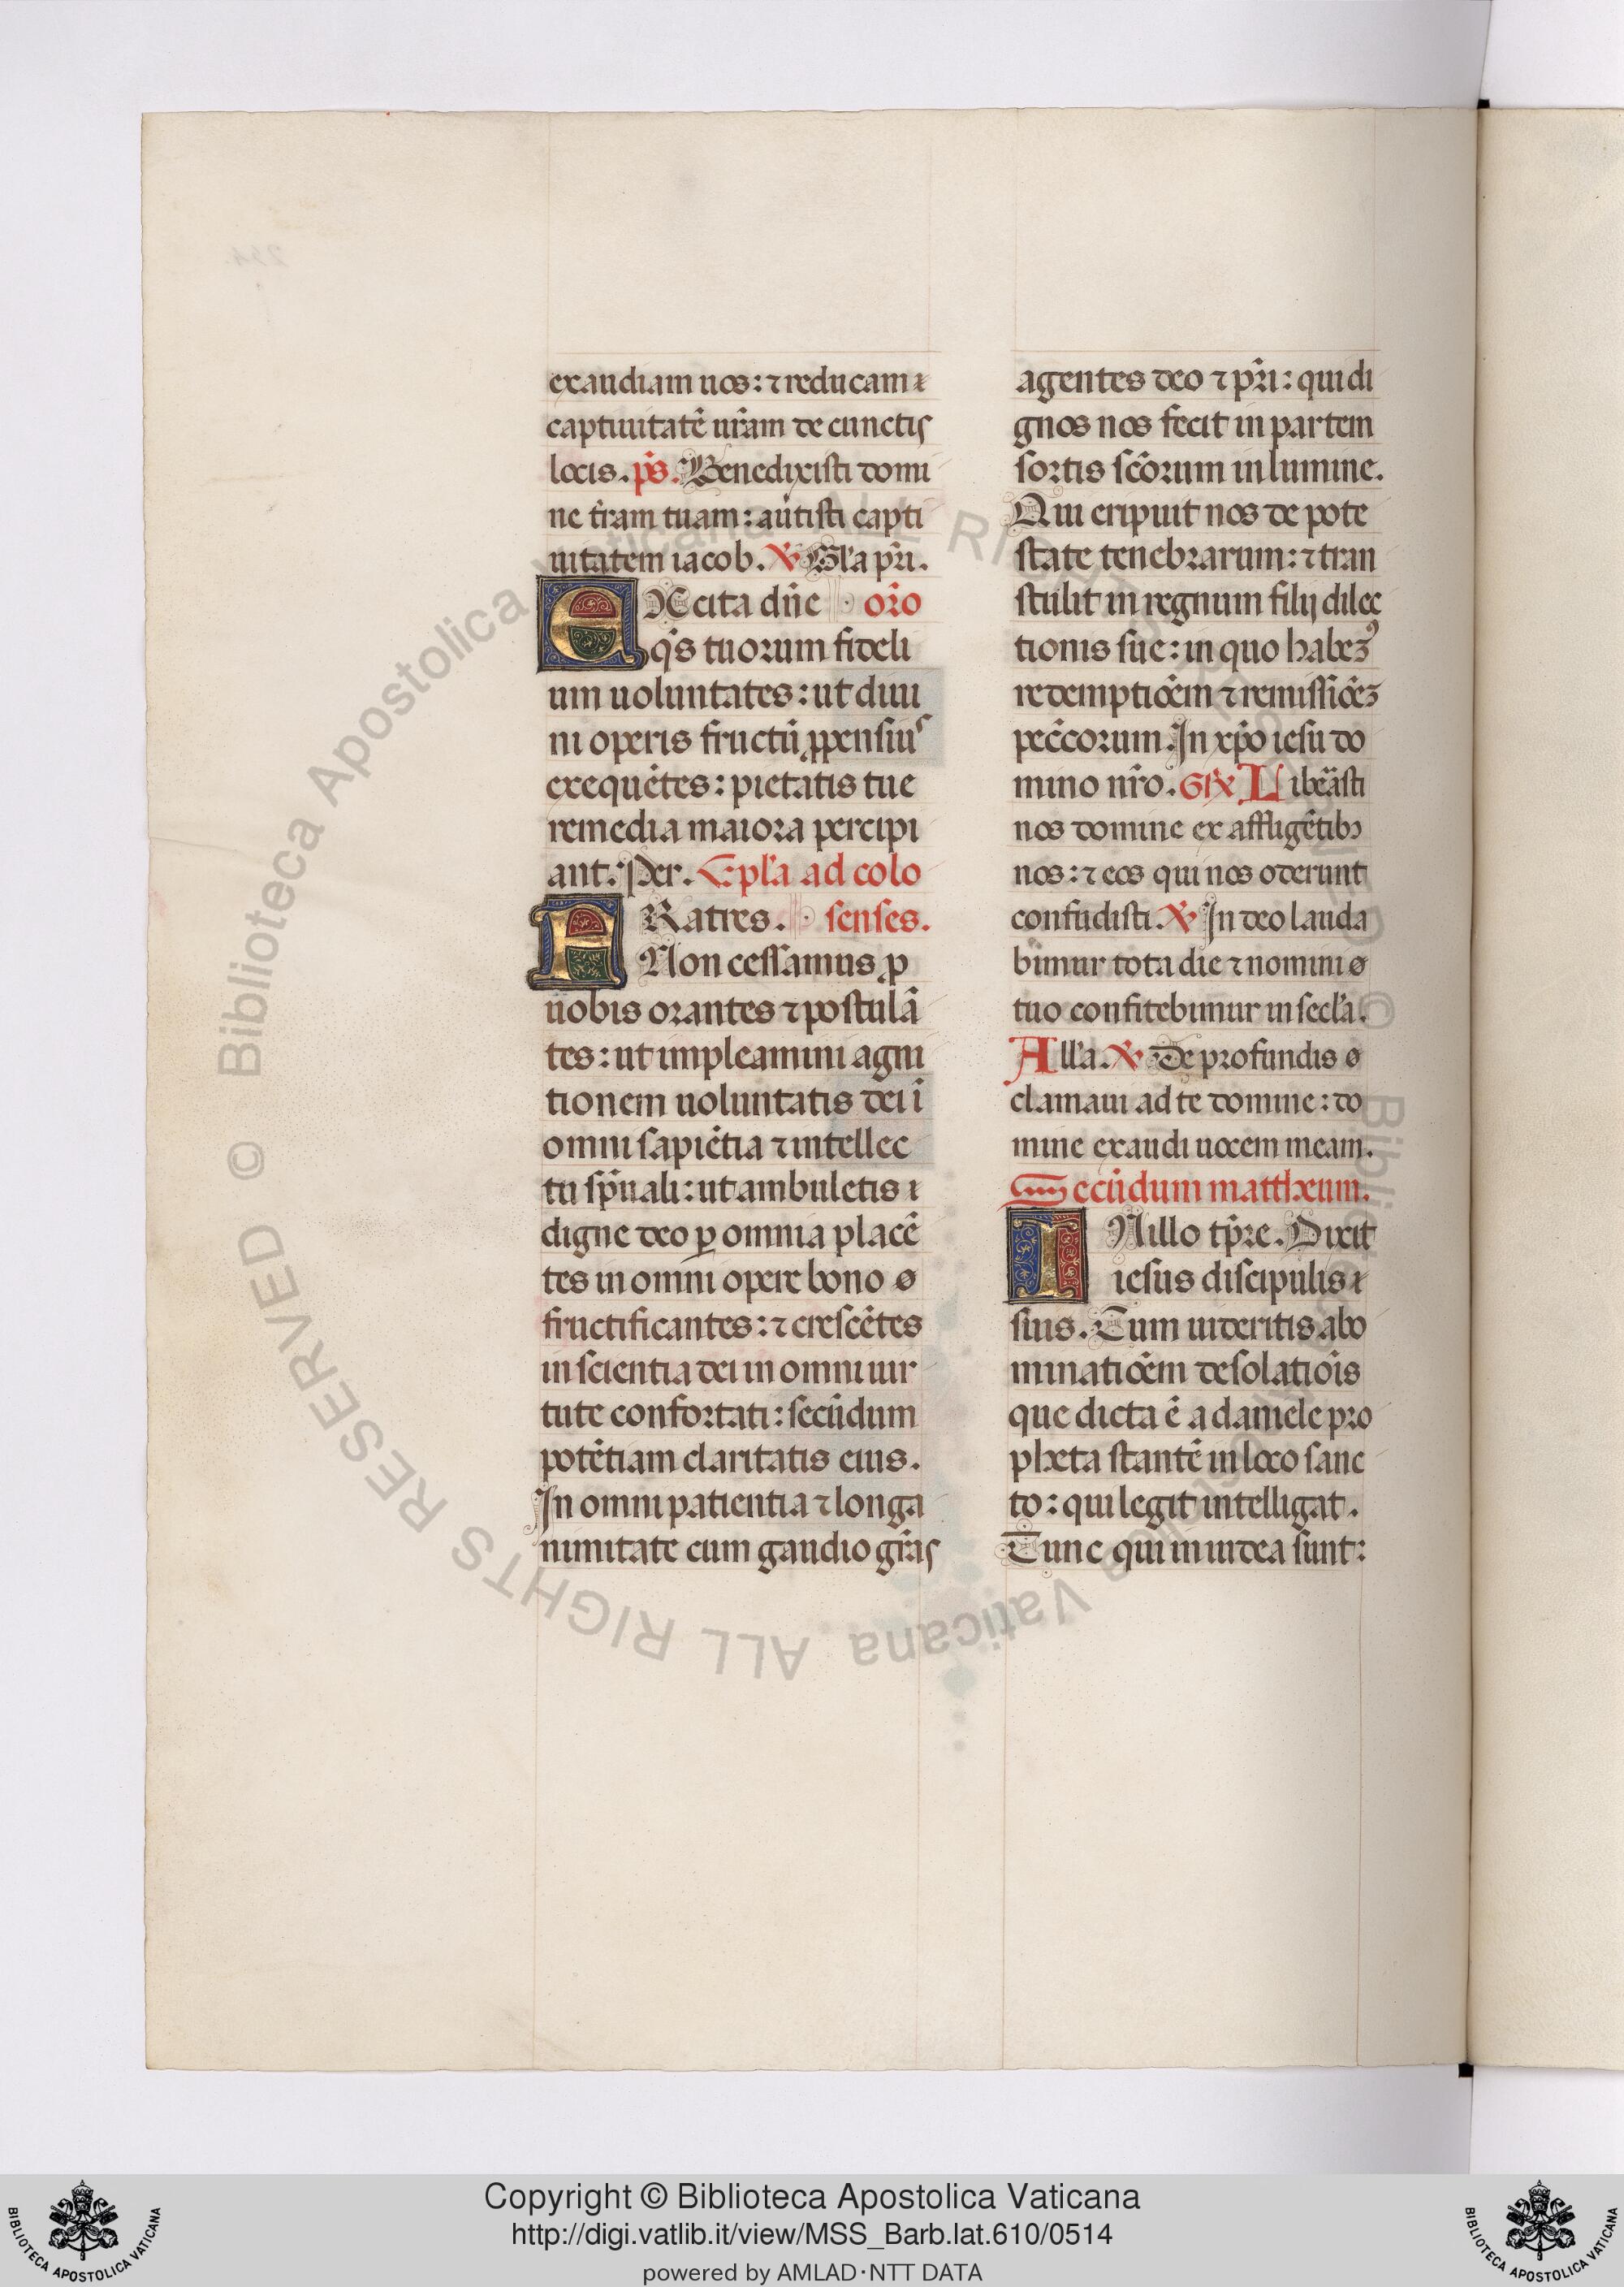 exaudiam uos: ⁊ reducam
captiuitatē ur̄am de cunctis
locis. p̄s. Benedixisti domi
ne t̄ram tuam: au̇tisti capti
uitatem iacob. ℣ Gl̄a pr̄i.
EXcita dn̄e or̄o
qs̄ tuorum fideli
um uoluntates: ut diui
ni operis fructū ꝓpensius
exequētes: pietatis tue
remedia maiora percipi
ant. Per. Epl̄a ad colo
FRatres. senses.
Non cessamus ꝓ
uobis orantes ⁊ postulā
tes: ut impleamini agni
tionem uoluntatis dei ī
omni sapiētia ⁊ intellec
tu sp̄uali: ut ambuletis
digne deo ꝑ omnia placē
tes in omni opere bono
fructificantes: ⁊ crescētes
in scientia dei in omni uir
tute confortati: secūdum
potētiam claritatis eius.
In omni patientia ⁊ longa
nimitate cum gaudio gr̄as
agentes deo ⁊ pr̄i: qui di
gnos nos fecit in partem
sortis sc̄orum in lumine.
Qui eripuit nos de pote
state tenebrarum: ⁊ tran
stulit in regnum filij dilec
tionis sue: in quo habemꝰ
redemptiōem ⁊ remissiōeꝫ
pec̄corum. In xp̄o iesu do
mino nr̄o. Gr̄. Liberasti
nos domine ex affligētibꝫ
nos: ⁊ eos qui nos oderunt
confudisti. ℣ In deo lauda
bimur tota die ⁊ nomini
tuo confitebimur in secl̄a.
All̄a. ℣ De profundis
clamaui ad te domine: do
mine exaudi uocem meam.
Secūdum mattheum.
IN illo tp̄re. Dixit
iesus discipulis
suis. Cum uideritis abo
minatiōem desolatiōis
que dicta ē a daniele pro
pheta stantē in loco sanc
to: qui legit intelligat.
Tunc qui in iudea sunt:
© Biblioteca Apostolica Vaticana ALL RIGHTS RESERVED
© Biblioteca Apostolica Vaticana ALL RIGHTS RESERVED
Copyright © Biblioteca Apostolica Vaticana
http://digi.vatlib.it/view/MSS_Barb.lat.610/0514
powered by AMLAD·NTT DATA
BIBLIOTECA APOSTOLICA VATICANA
BIBLIOTECA APOSTOLICA VATICANA